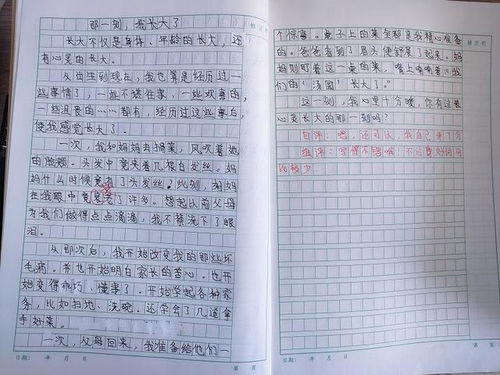 那一刻，我长大了
长大不仅是身体、年龄的长大，还
有心灵的长大。
从出生到现在，我也算是经历过一
些事情了，一些不堪往事，一些欢喜的，
一些沮丧的……都有，经历过这些事后，
使我感觉长大了。
一次，我和妈妈去摘菜，风吹着她
的脸颊。头发中竟夹着几根白发丝。妈
妈什么时候竟有了头发丝。此刻，妈妈
在我眼中竟老了许多。想起以前父母
为我们做得点点滴滴，我不禁流下了眼
泪。
从那次后，我开始改变我的那些坏
毛病。并也开始明白家长的苦心。也开
始变得乖巧、懂事了。开始学起各种家
务，比如扫地、洗碗。还学会了几道拿
手好菜。
一次，父母回来，我准备给他们一
个惊喜。桌子上的菜全都是我精心准备
的。爸爸看到了眉头便舒展了起来。妈
妈则盯着这一桌的菜，嘴上喃喃着：“我
们的‘汤圆’长大了。”
这一刻，我心里十分暖，你有这般
心灵长大的那一刻吗？
自评：嗯，还可以，我自己来了方
批评：写得不错哦！不过费好词句
比较少
日期： 年 月 日
第 页
日期： 年 月 日
第 页